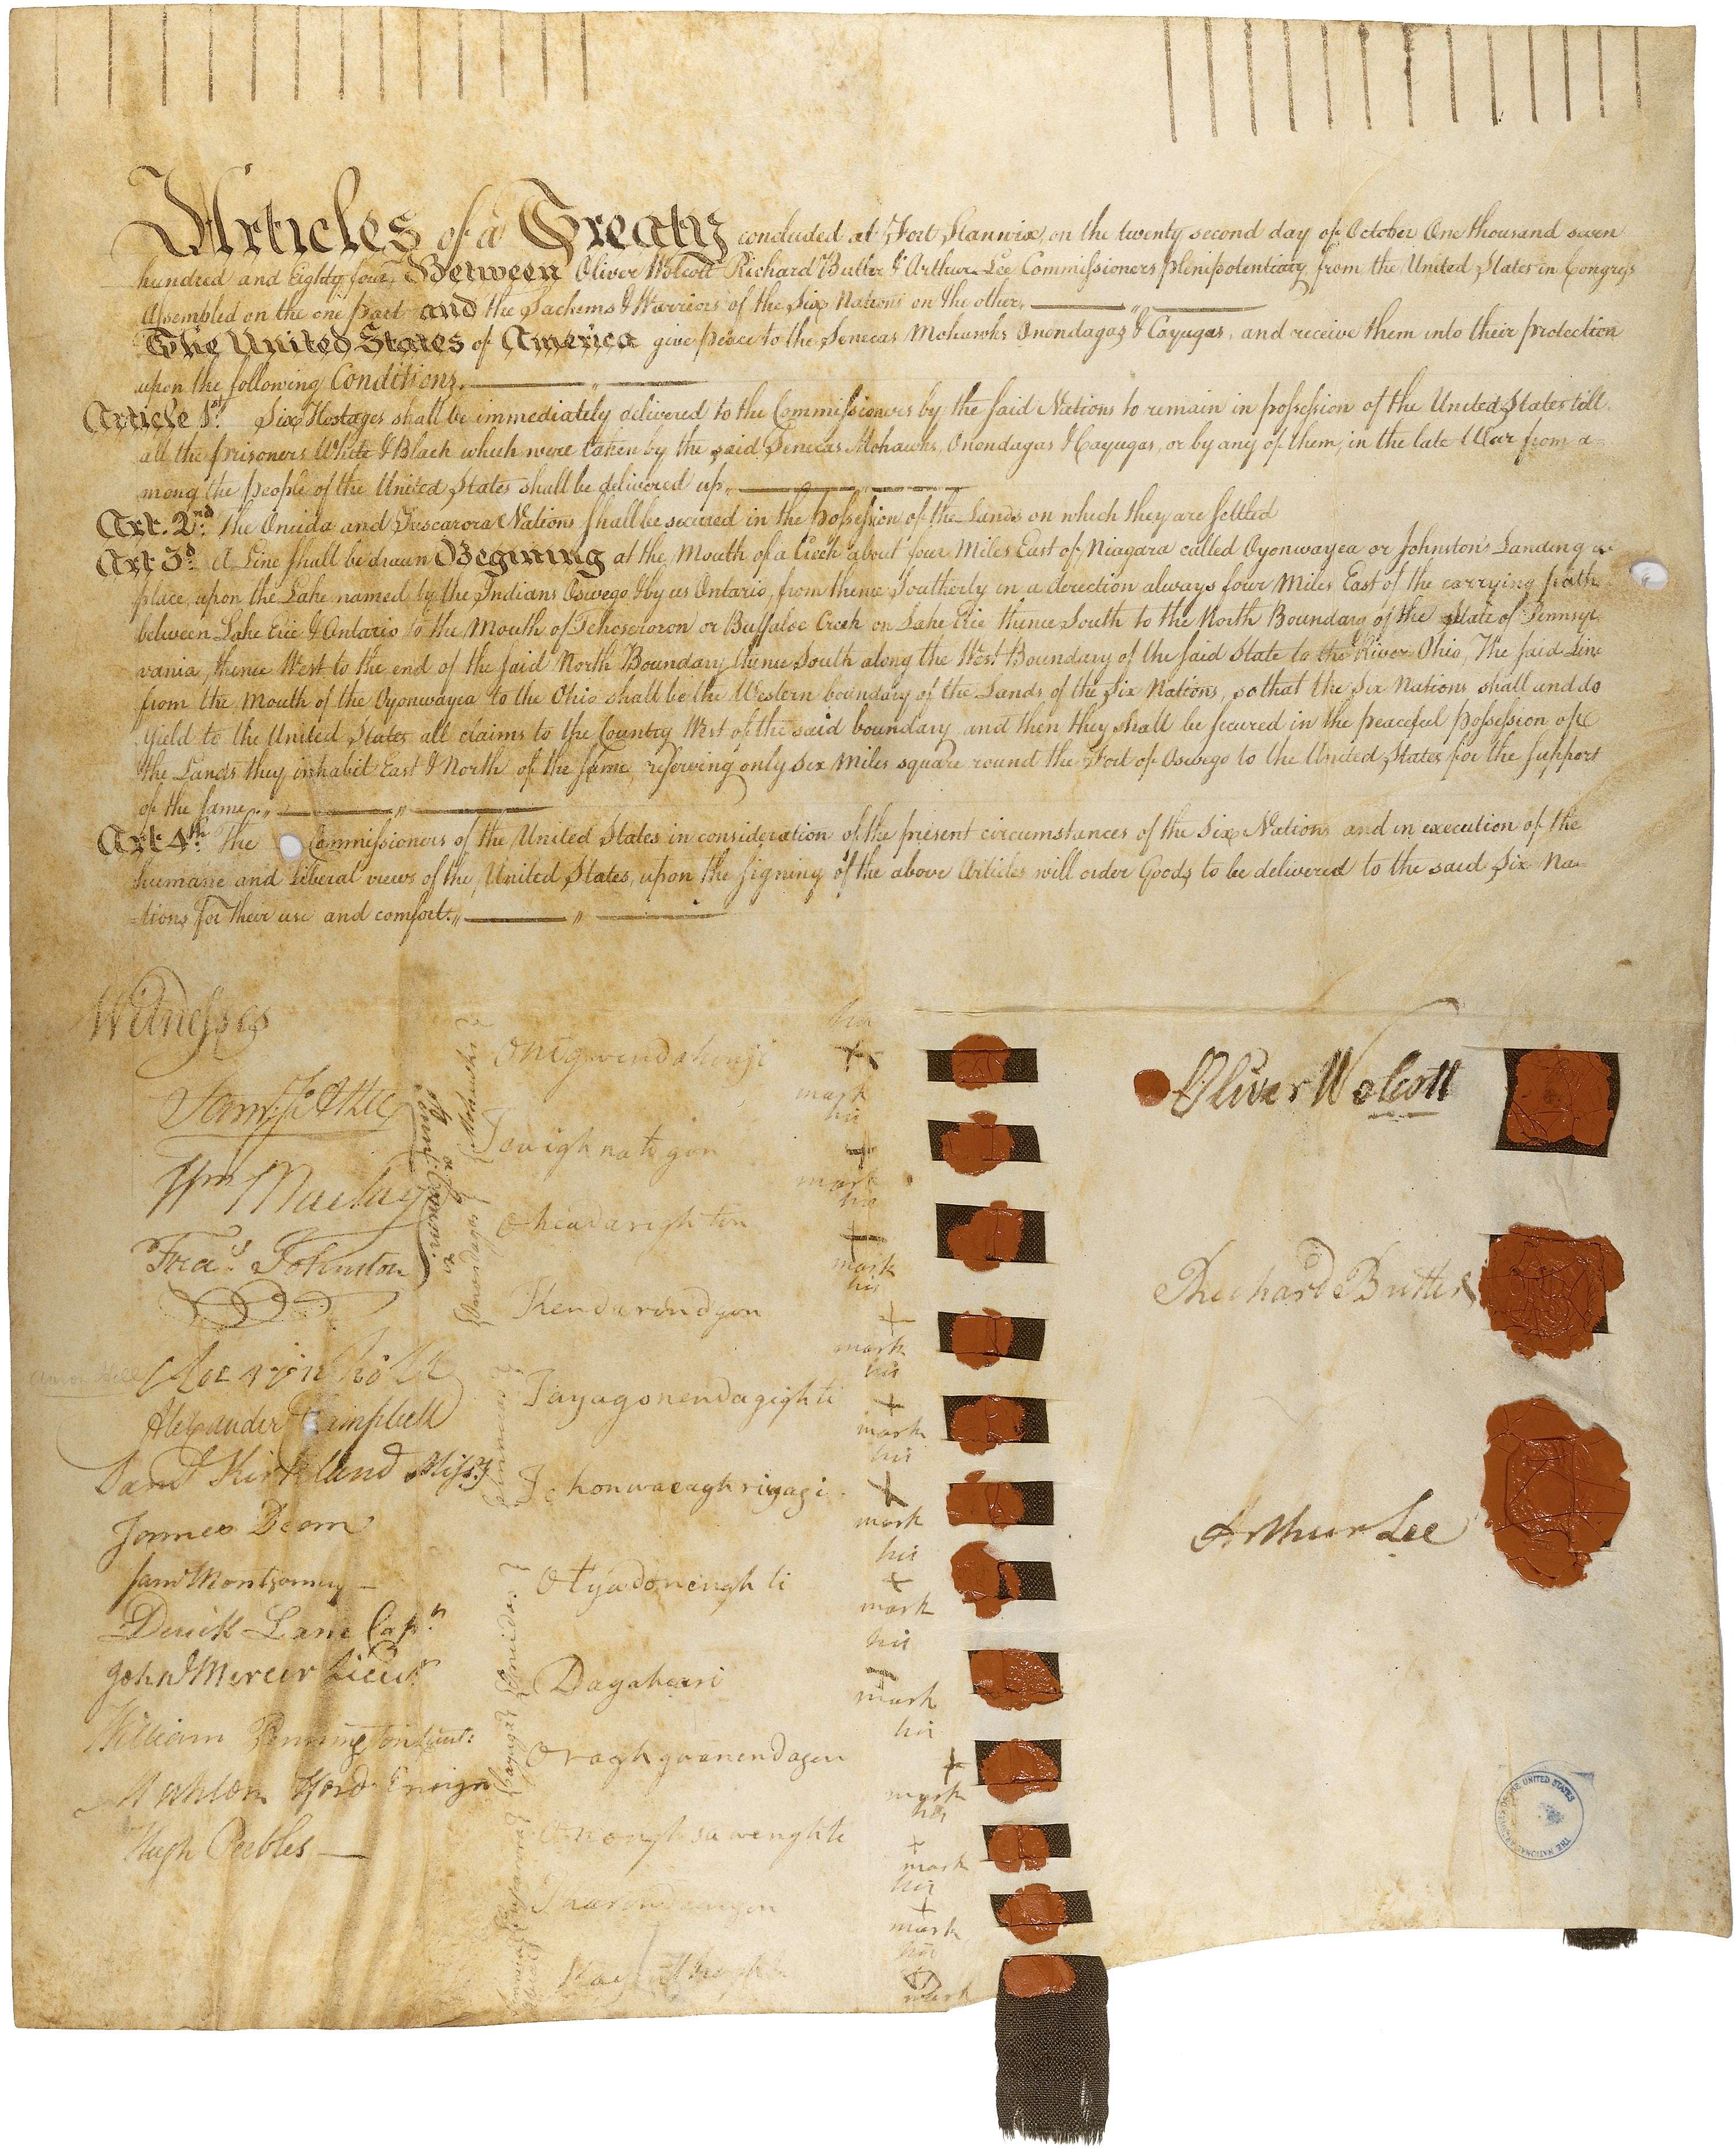 Articles of a Treaty concluded at Fort Stanwix, on the twenty second day of October One thousand seven
hundred and Eighty four, Between Oliver Wolcott Richard Butler & Arthur Lee Commissioners plenipotentiary from the United States in Congress
Assembled on the one Part and the Sachems & Warriors of the Six Nations on the other.
The United States of America give peace to the Senecas Mohawks Onondagas & Cayugas, and receive them into their protection
upon the following Conditions.
Article 1st. Six Hostages shall be immediately delivered to the Commissioners by the said Nations to remain in possession of the United States till
all the prisoners White & Black which were taken by the said Senecas Mohawks, Onondagas & Cayugas, or by any of them, in the late War from a=
mong the people of the United States shall be delivered up.
Art. 2nd. The Oneida and Tuscarora Nations shall be secured in the Possession of the Lands on which they are settled
Art 3d. A Line shall be drawn Begining at the Mouth of a Creek about four Miles East of Niagara called Oyonwayea or Johnston's Landing
place, upon the Lake named by the Indians Oswego & by us Ontario, from thence Southerly in a derection always four Miles East of the carrying path
between Lake Erie & Ontario to the Mouth of Tehoseroron or Buffaloe Creek on Lake Erie thence South to the North Boundary of the State of Pennsyl
vania, thence West to the end of the said North Boundary thence South along the West Boundary of the said State to the River Ohio, The said Line
from the Mouth of the Oyonwayea to the Ohio shall be the Western boundary of the Lands of the Six Nations, so that the Six Nations shall and do
yield to the United States all claims to the Country West of the said boundary, and then they shall be secured in the peaceful possession of
the Lands they inhabit East & North of the same, reserving only six miles square round the Fort of Oswego to the United States for the support
of the same.
Art 4th. The Commissioners of the United States in consideration of the present circumstances of the Six Nations and in execution of the
humane and liberal views of the United States, upon the signing of the above Articles will order Goods to be delivered to the said Six Na=
=tions for their use and comfort.
Witnesses
Saml. J. Atlee
Wm Maclay
Fras. Johnston
Pennsa. Commrs.
Aaron Hill
Alexander Campbell
Saml. Kirkland Missy
James Dean
Saml Montgomery
Derick Lane Capn.
John Mercer Lieut.
William Pennington Lieut.
Mahlon Hord Ensign
Hugh Peebles
Mohawks
Onigwendahonji
his
mark
Towighnatogon
his
mark
Onondagas
Oheadarighton
his
mark
Kendarindgon
his
mark
Tayagonendagighti
his
mark
Tehonwaeaghriyagi
his
mark
Oneidas
Otyadonenghti
his
mark
Dagaheari
his
mark
Cayugas
Oraghgoanendagen
his
mark
his
mark
his
mark
his
mark
Oliver Wolcott
Richard Butler
Arthur Lee
THE NATIONAL ARCHIVES OF THE UNITED STATES